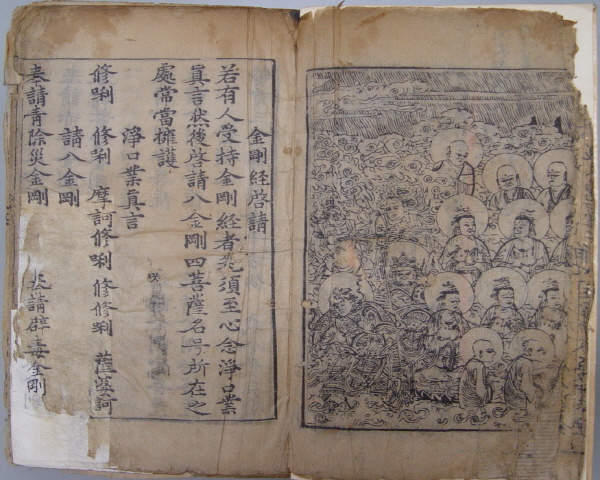 金剛經啓請
若有人受持金剛經者先須至心念淨口業
眞言然後啓請八金剛四菩薩名号所在之
處常當擁護
淨口業眞言
修唎 修利 摩訶修唎 修修唎 薩婆訶
請八金剛
奉請靑除災金剛 奉請辟毒金剛